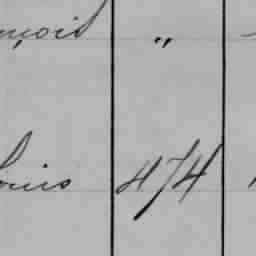 nçois "
Louis 474